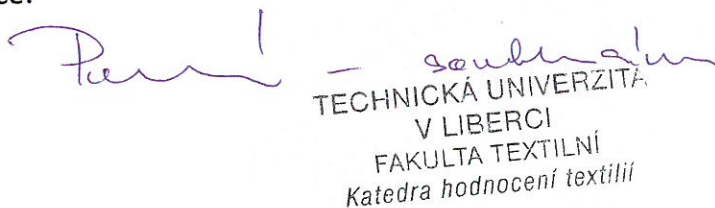 – souhlasím
TECHNICKÁ UNIVERZITA
V LIBERCI
FAKULTA TEXTILNÍ
Katedra hodnocení textilií